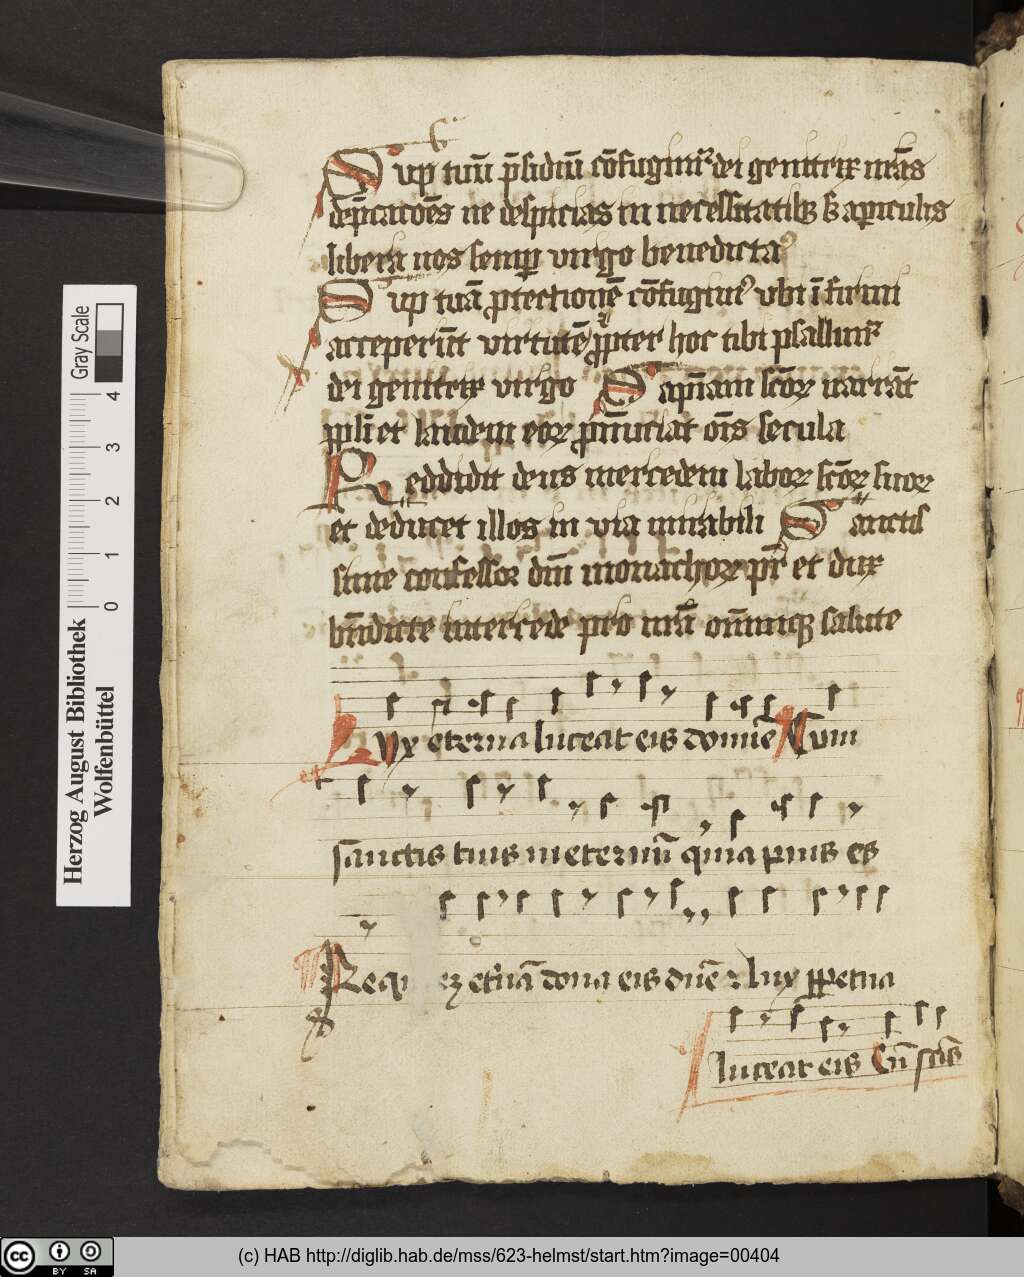 Sub tuū p̄sidiū cōfugimꝰ dei genitrix nr̄as
dep̄cacōēs ne despicias in necessitatibꝫ sꝫ a periculis
libera nos semp̲ virgo benedicta
Sub tuā ꝓtectionē cōfugimꝰ vbi īfirmi
acceperūt virtutē ꝓpter hoc tibi psallimꝰ
dei genitrix virgo Sapīam scōꝝ narrāt
ppl̄i et laudem eoꝝ ꝓnūciat oīs secula
Reddidit deus mercedem laboꝝ scōꝝ suoꝝ
et deducet illos in via mirabili Sanctis
sime confessor dn̄i monachoꝝ pr̄ et dux
bn̄dicte intercede pro nr̄a om̄iumqꝫ salute
Lux eterna luceat eis domine Cum
sanctis tuis in eternū quia pius es
Requ ez et'nā dona eis dn̄e ⁊ lux ꝑpetua
luceat eis Cū scīs
Herzog August Bibliothek
Wolfenbüttel
0 1 2 3 4
Gray Scale
cc BY SA
(c) HAB http://diglib.hab.de/mss/623-helmst/start.htm?image=00404